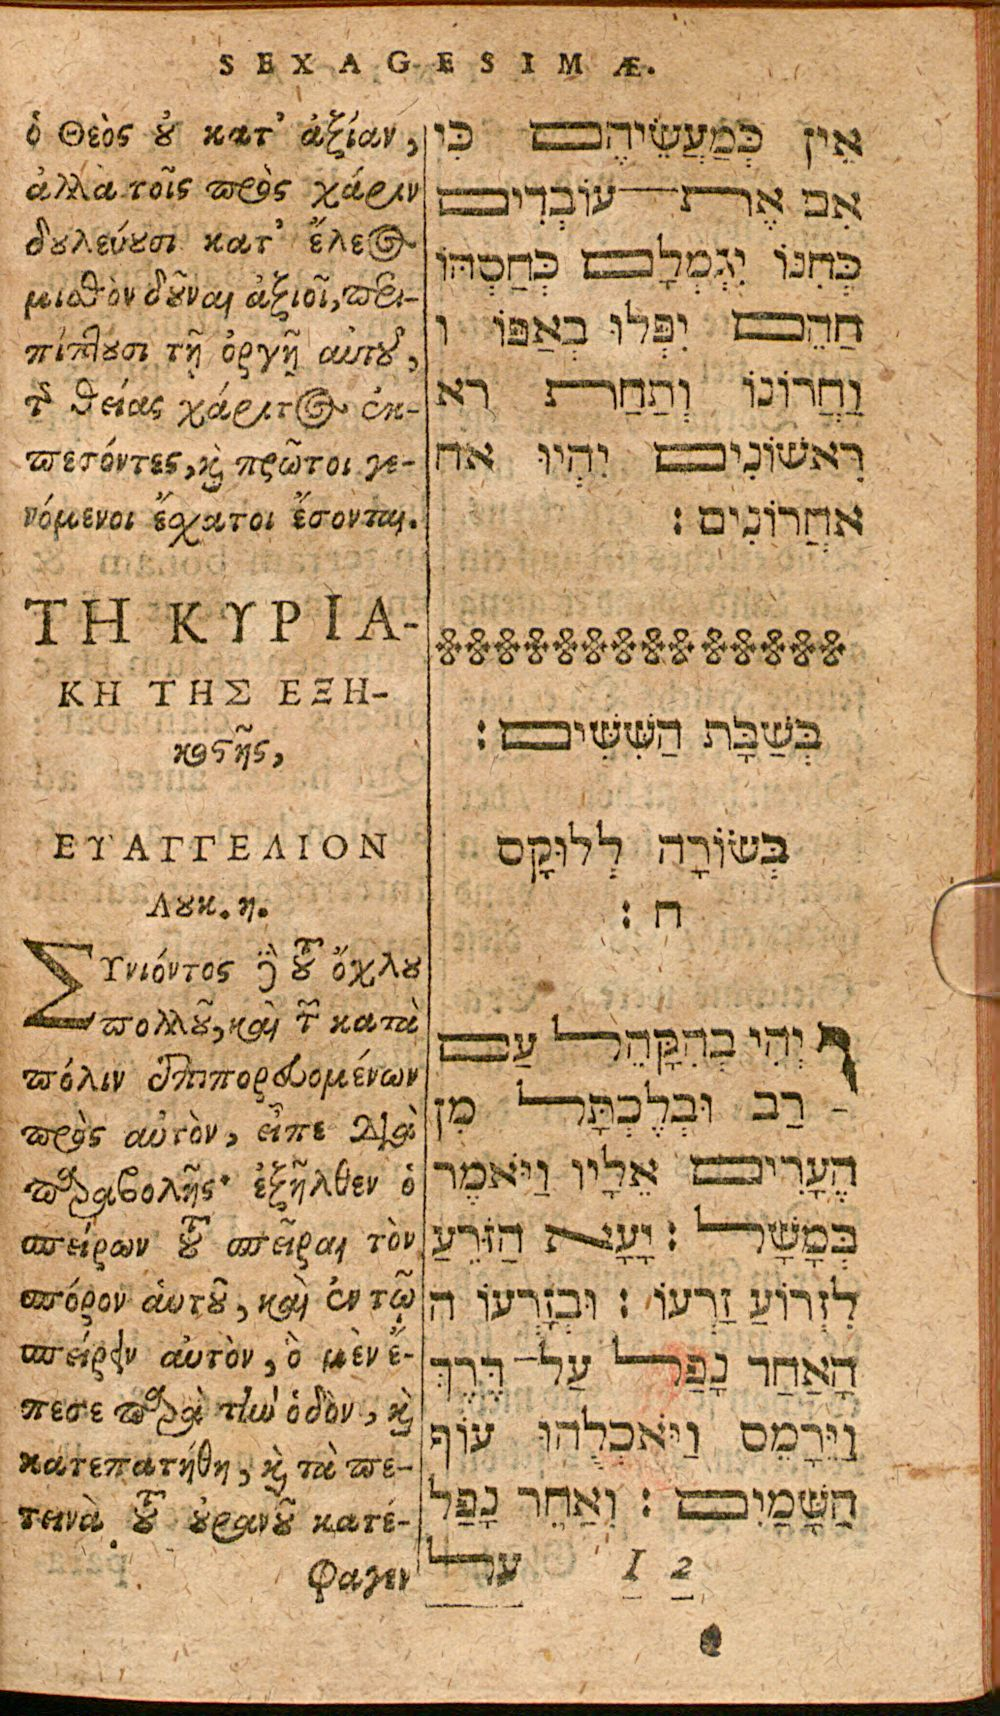 SEXAGESIMÆ.
ὁ Θεὸς ȣ̓ κατ' ἀξίαν,
ἀλλὰ τοῖς πρὸς χάριν
δȣλεύȣσι κατ' ἔλεος
μισθὸν δȣ͂ναι ἀξιοῖ, περι-
πίπτȣσι τῇ ὀργῇ αὐτȣ͂,
τῆς θείας χάριτος ἐκ-
πεσόντες, καὶ πρῶτοι γε-
νόμενοι ἔσχατοι ἔσονται.
ΤΗ ΚΥΡΙΑ-
ΚΗ ΤΗΣ ΕΞΗ-
κοστῆς,
ΕΥΑΓΓΕΛΙΟΝ
Λȣκ. η.
Συνιόντος δὲ τȣ͂ ὄχλȣ
πολλȣ͂, καὶ τῶν κατὰ
πόλιν ἐπιπορευομένων
πρὸς αὐτὸν, εἶπε διὰ
παραβολῆς· ἐξῆλθεν ὁ
σπείρων τȣ͂ σπεῖραι τὸν
σπόρον αὑτȣ͂, καὶ ἐν τῷ
σπείρειν αὐτὸν, ὃ μὲν ἔ-
πεσε παρὰ τὴν ὁδὸν, καὶ
κατεπατήθη, καὶ τὰ πε-
τεινὰ τȣ͂ ȣ̓ρανȣ͂ κατέ-
φαγεν
אֵין כְּמַעֲשֵׂיהֶם כִּי
אִם אֶת עוֹבְדִים
כְּחִנּוֹ יִגְמְלָם כְּחַסְדּוֹ
הַהֵם יִפְּלוּ בְאַפּוֹ ו
וַחֲרוֹנוֹ וְתַחַת רא
רִאשׁוֹנִים יִהְיוּ אח
אחֲרוֹנִים :
בְּשַׁבָּת הַשִּׁשִּׁים :
בְּשׂוֹרָה לְלוּקָס
ח :
וַיְהִי בְהִקָּהֵל עַם
רַב וּבְלֶכְתָּל מִן
הֶעָרִים אֵלָיו וַיּאמֶר
בְּמָשָׁל : יָצָא הַזּוֹרֵעַ
לִזְרוֹעַ זַרְעוֹ : וּבְזָרְעוֹ ה
הָאַחַד נָפַל עַל דֶּרֶךְ
וַיֵּרָמֵס וַיּאכְלֻהוּ עוֹף
הַשָּׁמָיִם : וְאַחֵר נָפַל
על
I 2